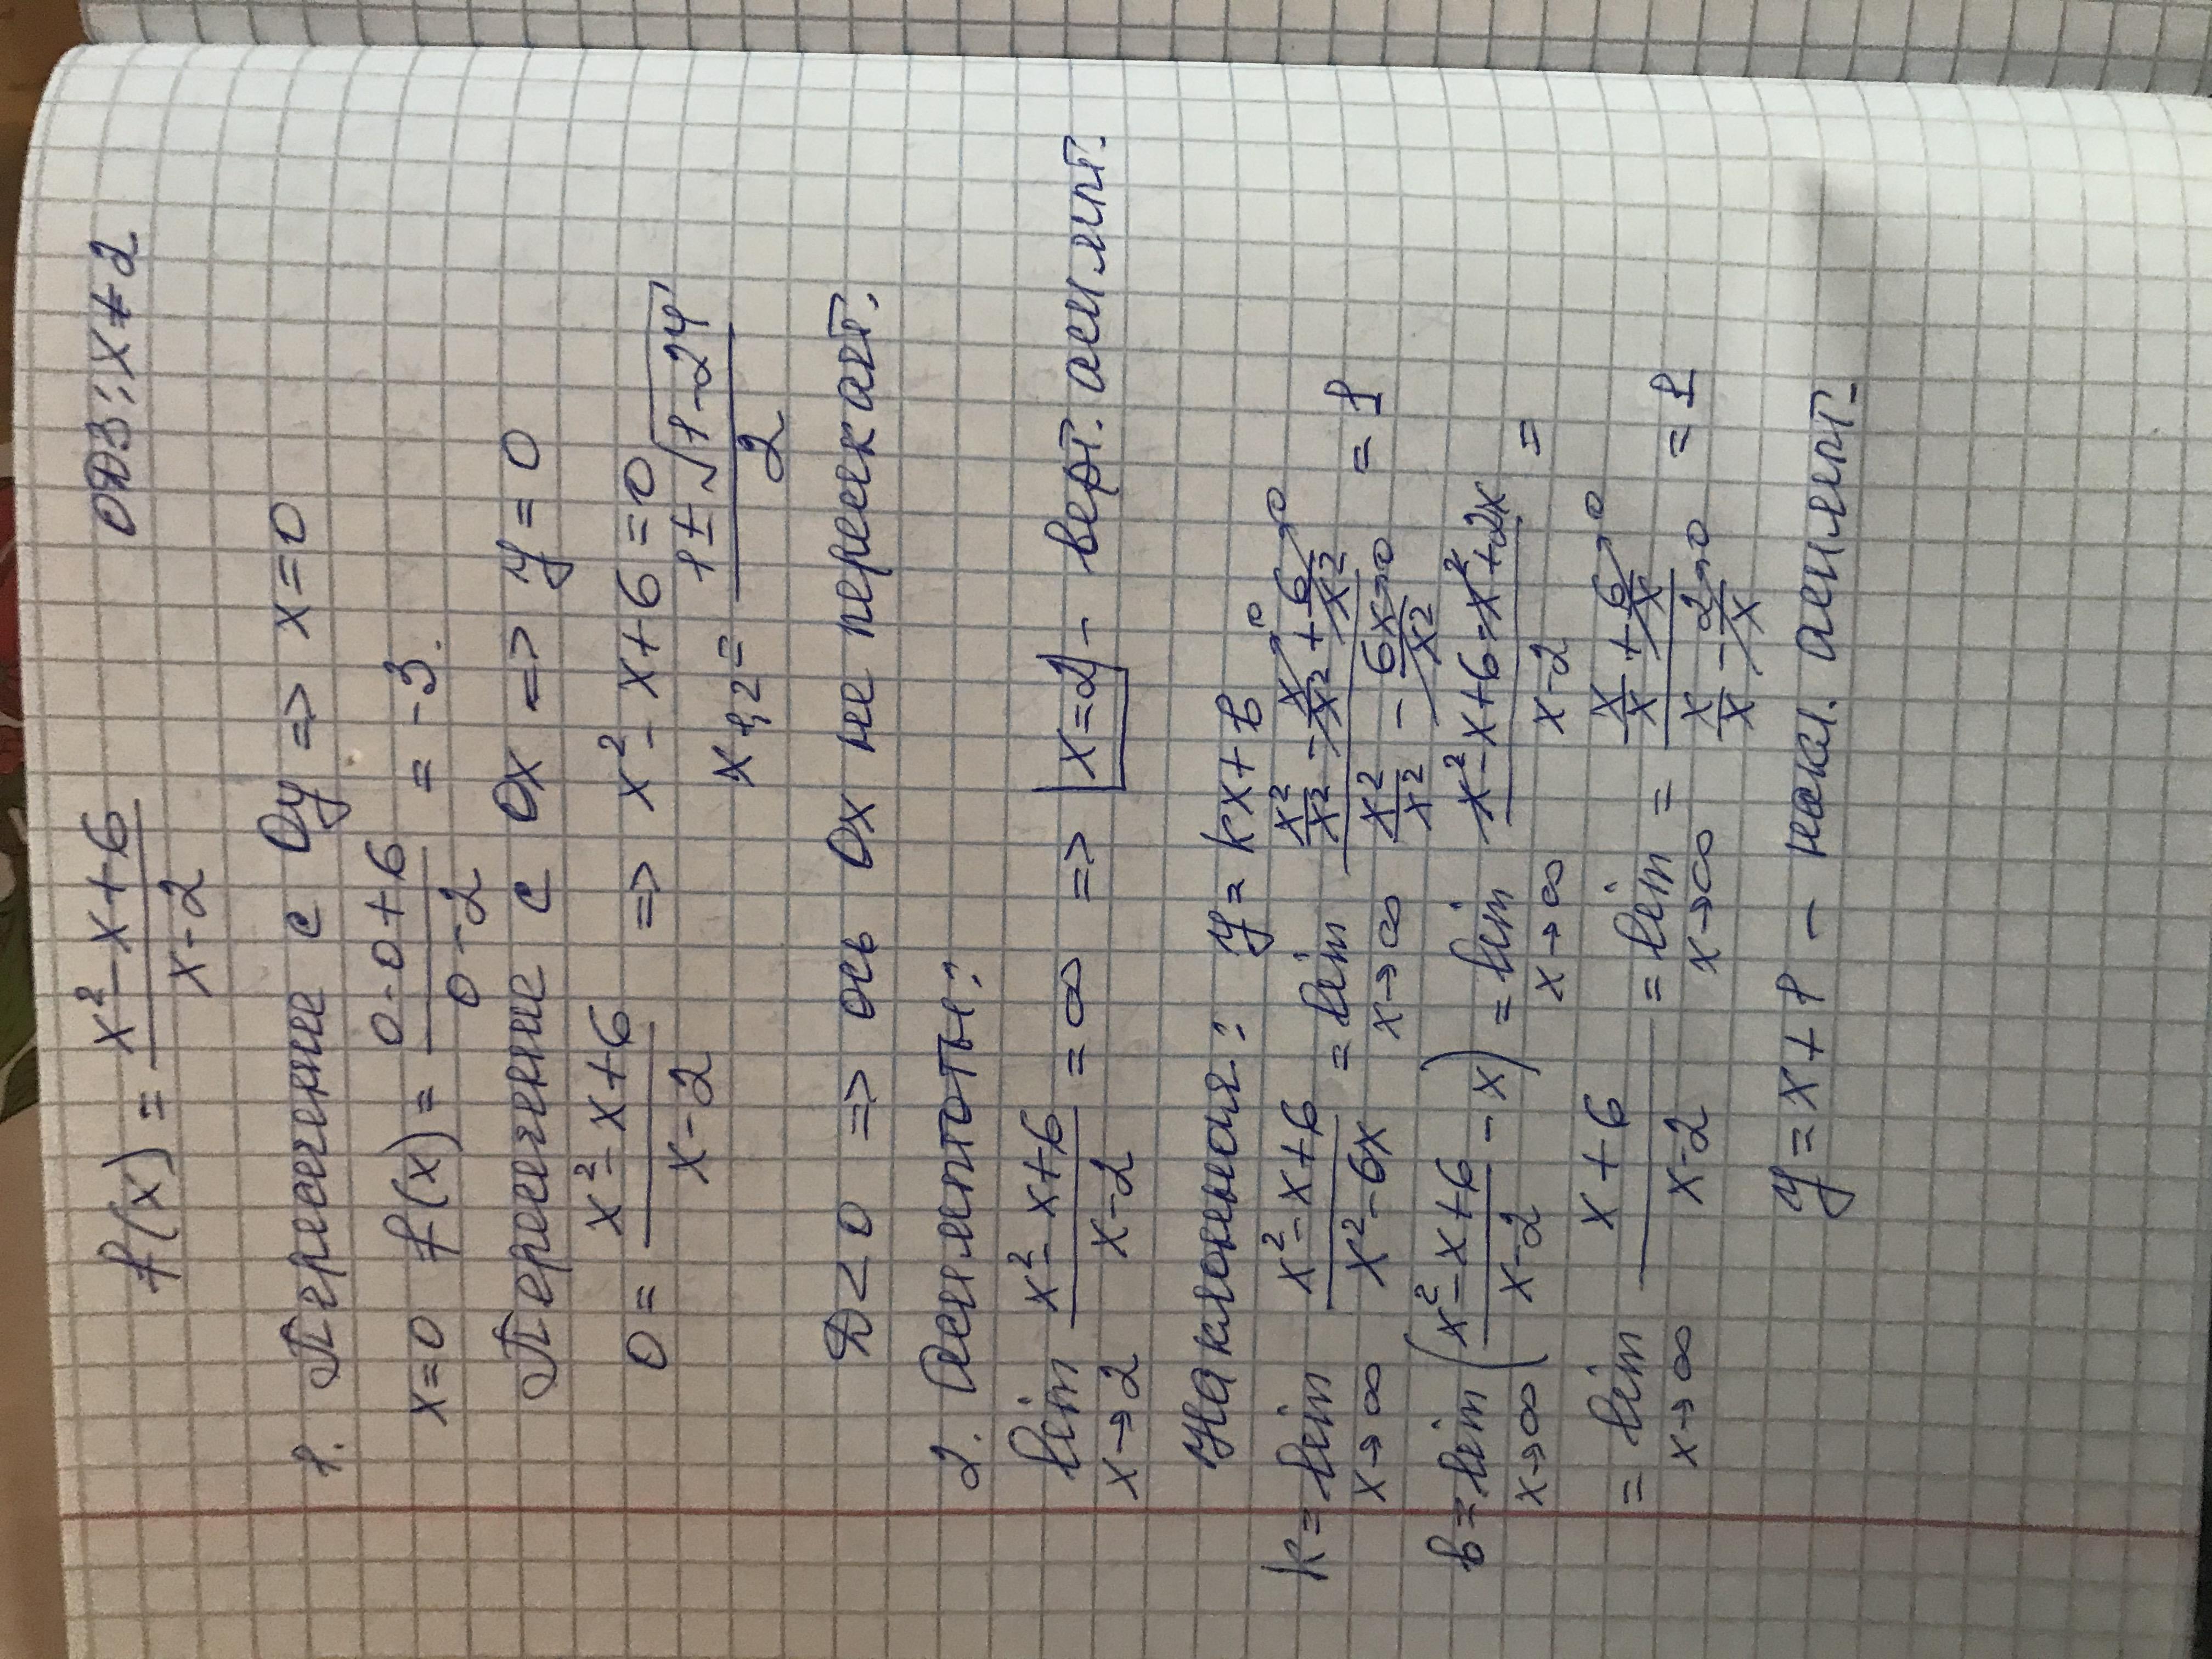 f(x) = (x² - x + 6)/(x - 2)   ОДЗ: x ≠ 2
1. Пересечение с Oy => x = 0
x = 0   f(x) = (0 - 0 + 6)/(0 - 2) = -3.
Пересечение с Ox => y = 0
0 = (x² - x + 6)/(x - 2) => x² - x + 6 = 0
x1,2 = (1 ± √(1 - 24))/2
D < 0 => ось Ox не пересекает.
2. Асимптоты:
lim x→2 (x² - x + 6)/(x - 2) = ∞ => x = 2 - верт. асимпт.
Наклонная: y = kx + b
k = lim x→∞ (x² - x + 6)/(x² - 6x) = lim x→∞ (x²/x² - x/x²→0 + 6/x²→0)/(x²/x² - 6x/x²→0) = 1
b = lim x→∞ ((x² - x + 6)/(x - 2) - x) = lim x→∞ (x² - x + 6 - x² + 2x)/(x - 2) =
= lim x→∞ (x + 6)/(x - 2) = lim x→∞ = (x/x + 6/x→0)/(x/x - 2/x→0) = 1
y = x + 1 - накл. асимпт.